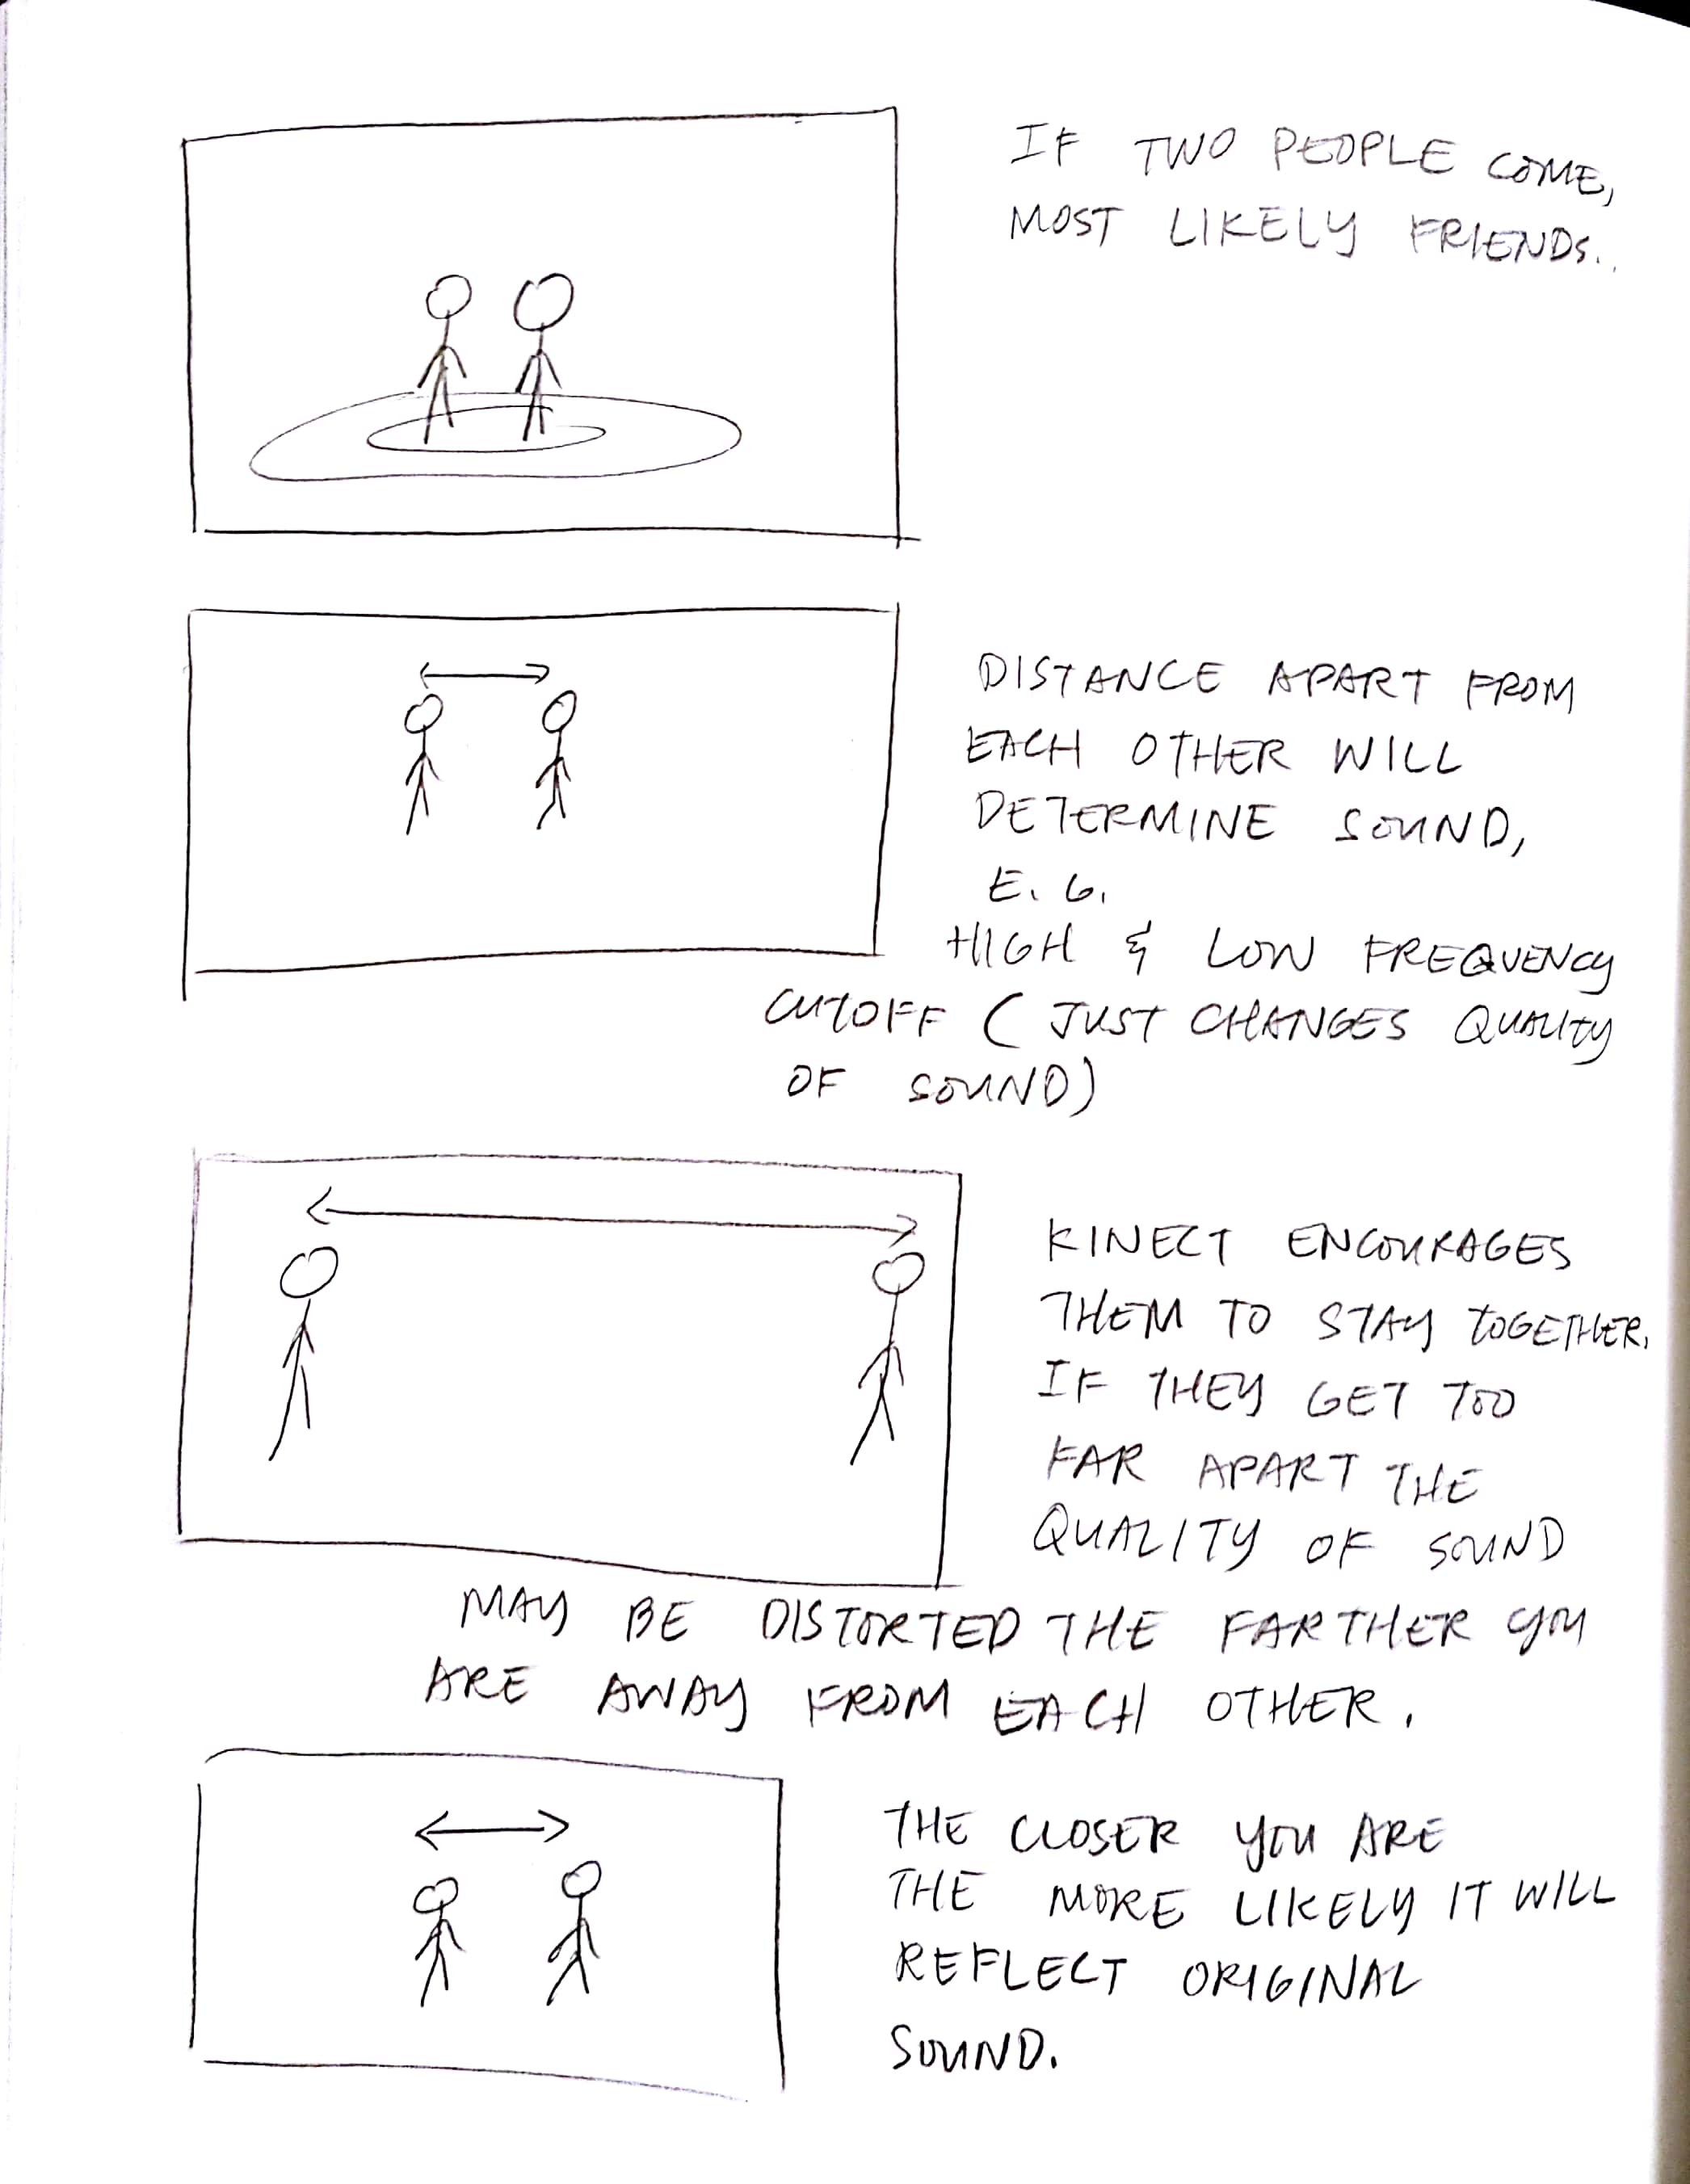 IF TWO PEOPLE COME,
MOST LIKELY FRIENDS..
DISTANCE APART FROM
EACH OTHER WILL
DETERMINE SOUND,
E.G.
HIGH & LOW FREQUENCY
CUTOFF (JUST CHANGES QUALITY
OF SOUND)
KINECT ENCOURAGES
THEM TO STAY TOGETHER.
IF THEY GET TOO
FAR APART THE
QUALITY OF SOUND
MAY BE DISTORTED THE FARTHER YOU
ARE AWAY FROM EACH OTHER.
THE CLOSER YOU ARE
THE MORE LIKELY IT WILL
REFLECT ORIGINAL
SOUND.